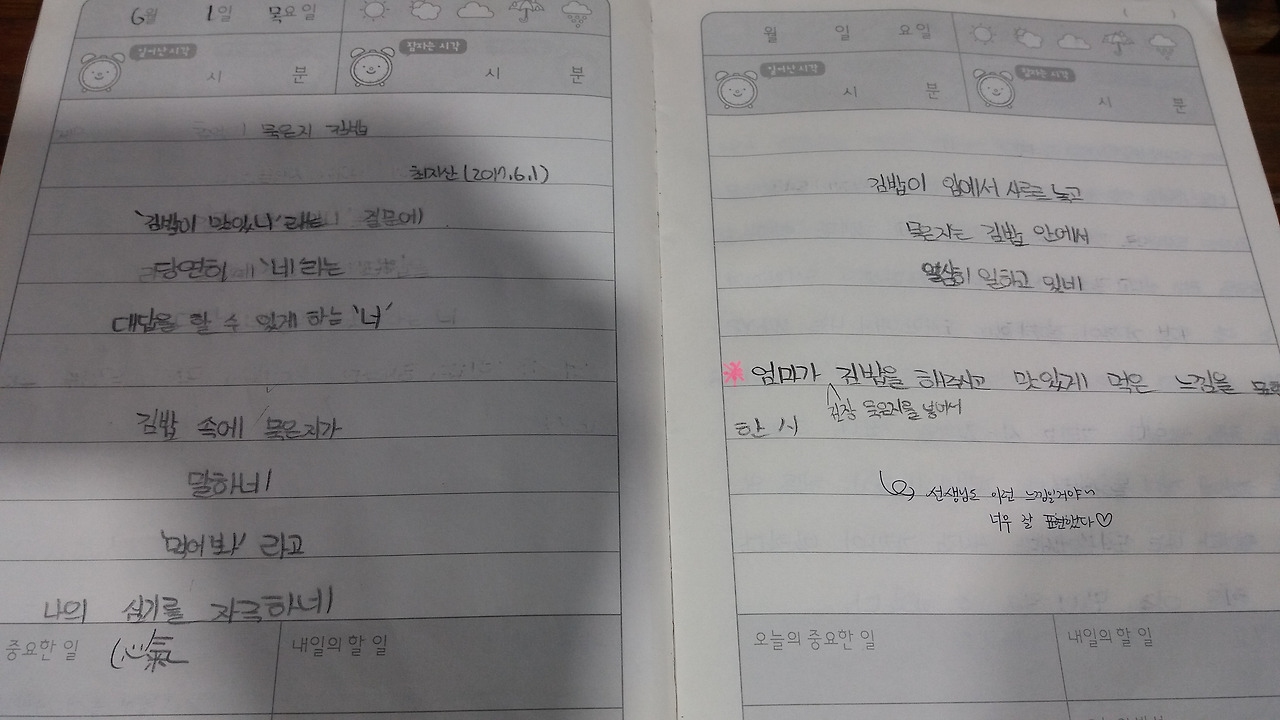 6월 1일 목요일
일어난 시각 잠자는 시각
시 분 시 분
묵은지 김밥
최지산 (2017.6.1)
'김밥이 맛있니' 라는 질문에
당연히 '네'라는
대답을 할 수 있게 하는 '너'
김밥 속에 묵은지가
말하네
'먹어봐' 라고
나의 심기를 자극하네
중요한 일 (心氣
내일의 할 일
월 일 요일
일어난 시각 잠자는 시각
시 분 시 분
김밥이 입에서 사르르 녹고
묵은지는 김밥 안에서
열심히 일하고 있네
※ 엄마가 김밥을 해주시고 맛있게 먹은 느낌을
김장 묵은지를 넣어서
한 시
선생님도 이런 느낌일거야~
너무 잘 표현했다♡
오늘의 중요한 일
내일의 할 일